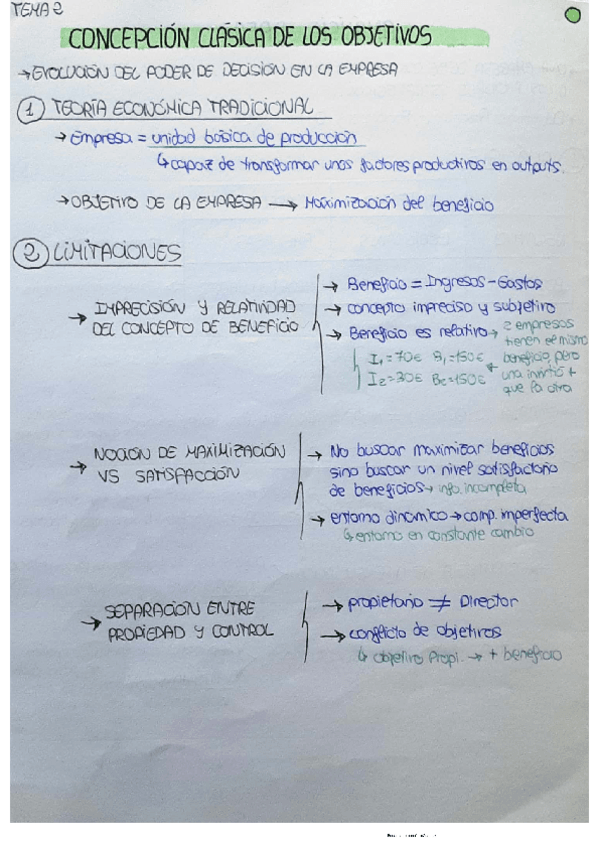 TEMA 2
CONCEPCIÓN CLÁSICA DE LOS OBJETIVOS
→ EVOLUCIÓN DEL PODER DE DECISIÓN EN LA EMPRESA
① TEORÍA ECONÓMICA TRADICIONAL
→ Empresa = unidad básica de producción
↳ capaz de transformar unos factores productivos en outputs.
→ OBJETIVO DE LA EMPRESA → Maximización del beneficio
② LIMITACIONES
→ IMPRECISIÓN Y RELATIVIDAD
DEL CONCEPTO DE BENEFICIO
→ Beneficio = Ingresos - Gastos
→ concepto impreciso y subjetivo
→ Beneficio es relativo → 2 empresas
tienen el mismo
beneficio, pero
una invirtió +
que la otra
I₁ = 70€ B₁ = 150€
I₂ = 30€ B₂ = 150€
→ NOCIÓN DE MAXIMIZACIÓN
VS SATISFACCIÓN
→ No buscar maximizar beneficios
sino buscar un nivel satisfactorio
de beneficios → info. incompleta
→ entorno dinámico → comp. imperfecta
↳ entorno en constante cambio
→ SEPARACIÓN ENTRE
PROPIEDAD Y CONTROL
→ propietario ≠ Director
→ conflicto de objetivos
↳ objetivo Propi. → + beneficio